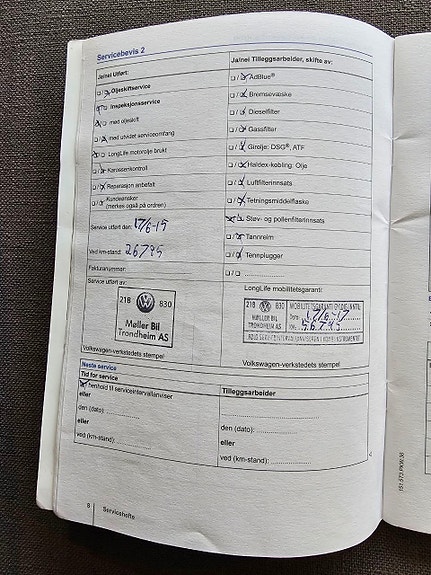 Servicebevis 2
Ja/nei Utført:
Oljeskiftservice
Inspeksjonsservice
med oljeskift
med utvidet serviceomfang
LongLife motorolje brukt
Karosserikontroll
Reparasjon anbefalt
Kundeønsker
(merkes også på ordren)
Service utført den: 17/6-15
Ved km-stand: 26795
Fakturanummer:
Service utført av:
218 830
Møller Bil
Trondheim AS
Volkswagen-verkstedets stempel
Ja/nei Tilleggsarbeider, skifte av:
AdBlue®
Bremsevæske
Dieselfilter
Gassfilter
Girolje: DSG®, ATF
Haldex-kobling: Olje
Luftfilterinnsats
Tetningsmiddelflaske
Støv- og pollenfilterinnsats
Tannreim
Tennplugger
LongLife mobilitetsgaranti:
218 830
MØLLER BIL
TRONDHEIM AS
MOBILITETSGARANTI GYLDIG INNTIL
Dato: 17/6-17
Km.: 56795
Volkswagen-verkstedets stempel
Neste service
Tid for service
I henhold til serviceintervallanviser
eller
den (dato):
eller
ved (km-stand):
Tilleggsarbeider
den (dato):
eller
ved (km-stand):
8 Servicehefte